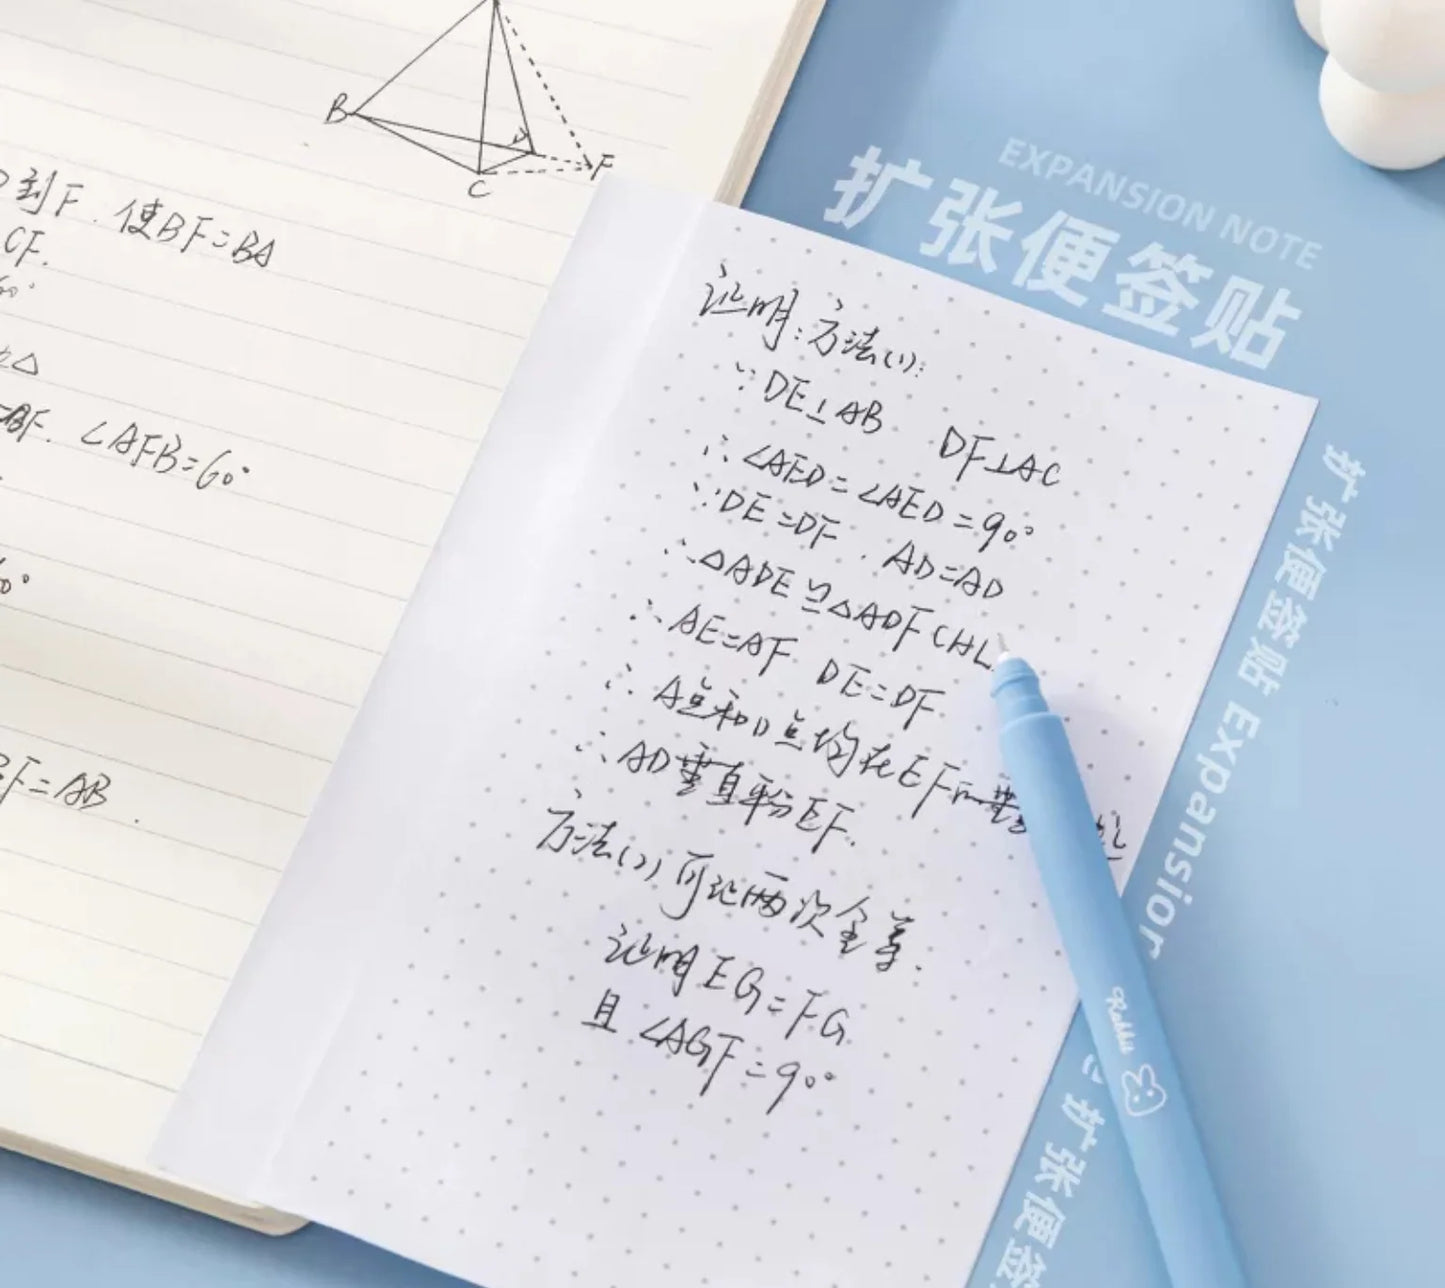 B
D
C
F
到F.使BF=BA
CF.
60°
△
BF.∠AFB=60°
60°
F=AB
EXPANSION NOTE
扩张便签贴
证明:方法(1):
∵DE⊥AB DF⊥AC
∴∠AED=∠AED=90°
∵DE=DF.AD=AD
∴△ADE≌△ADF(HL
∴AE=AF DE=DF.
∴A点和D点均在EF的垂
∴AD垂直平分EF.
方法(2)可证两次全等.
证明EG=FG
且∠AGF=90°
扩张便签贴 Expansion
Rabbit
扩张便签